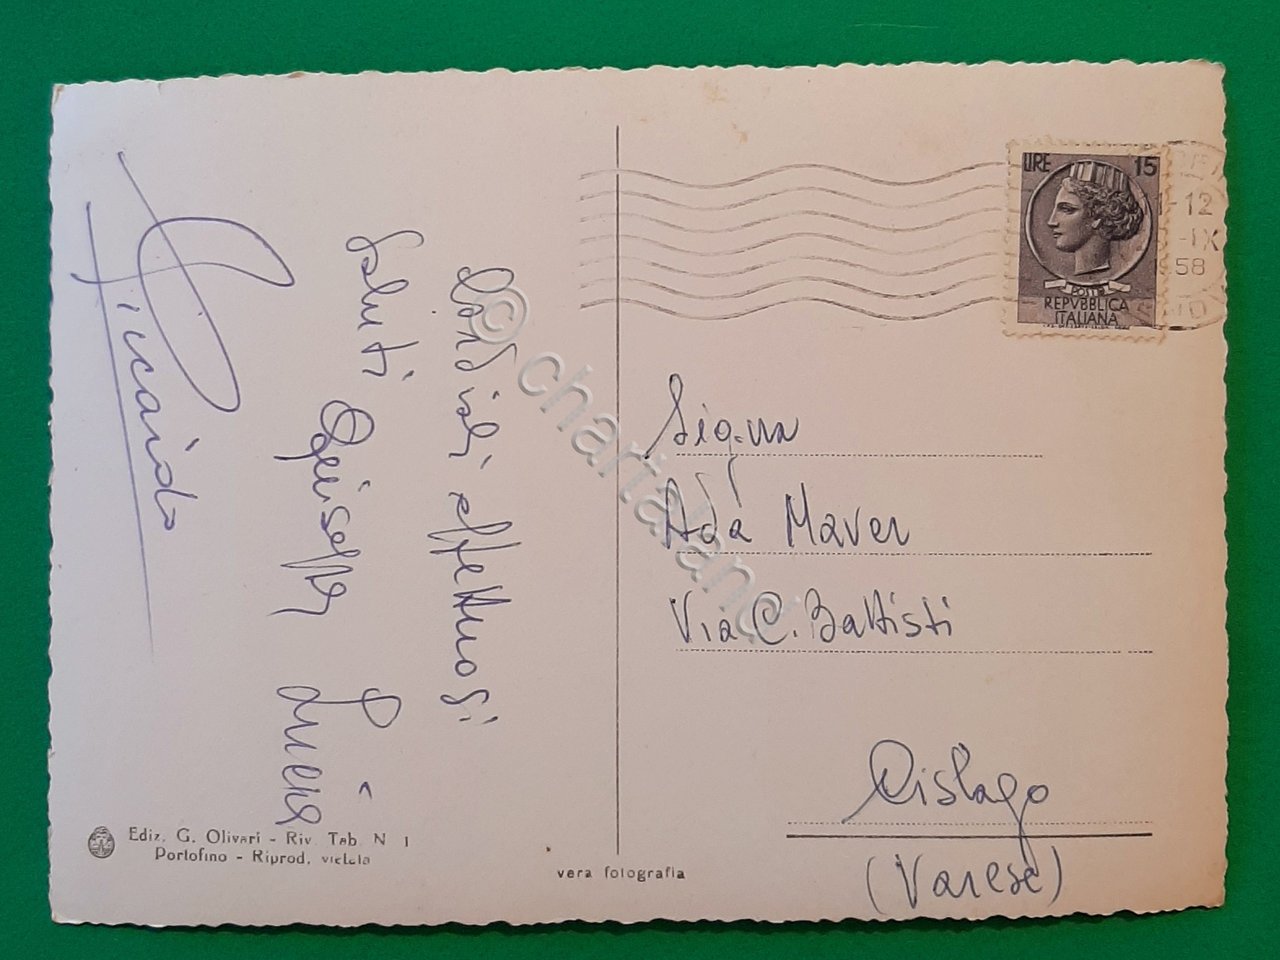 Cordiali affettuosi
Saluti Giuseppe Lucia
Riccardo
Ediz. G. Olivari - Riv. Tab. N 1
Portofino - Riprod. vietata
vera fotografia
LIRE 15
POSTE
REPVBBLICA
ITALIANA
-12
-IX
58
Sig.na
Ada Maver
Via C. Battisti
Cislago
(Varese)
© chartaland